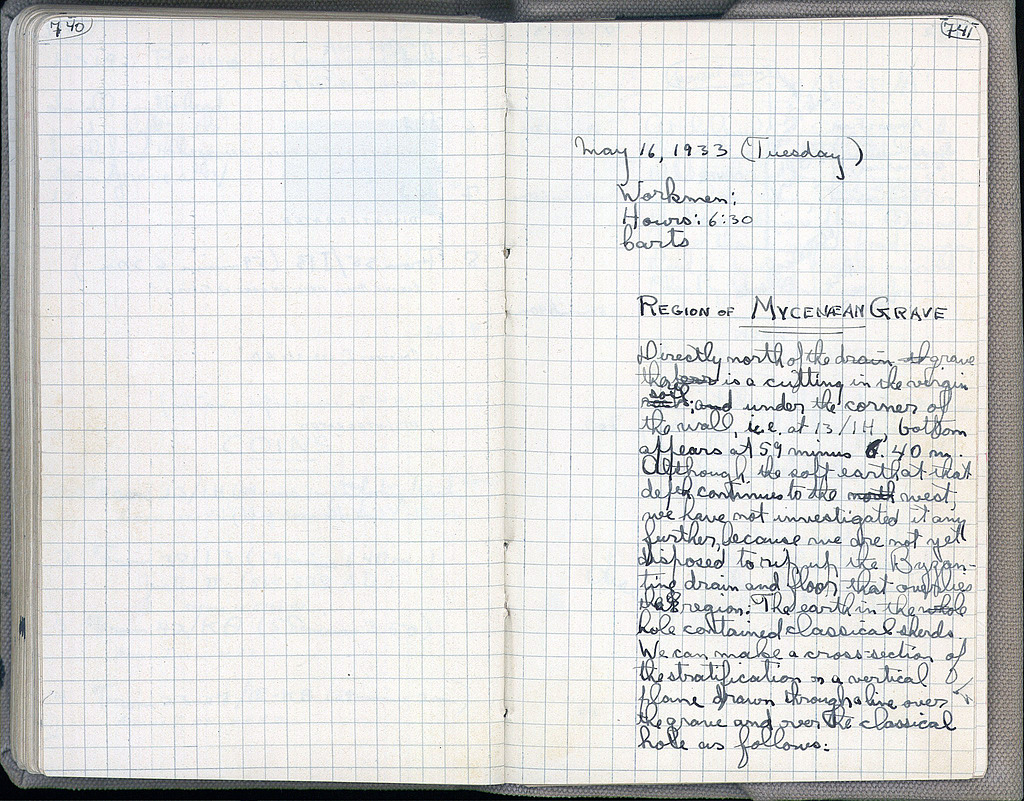 740
741
May 16, 1933 (Tuesday)
Workmen:
Hours: 6:30
Carts
REGION OF MYCENÆAN GRAVE
Directly north of the drain grave
there is a cutting in the virgin
soil and under the corner of
the wall, i.e. at 13/1H, bottom
appears at 59 minus 6.40 m.
Although the soft earth at that
depth continues to the north west,
we have not investigated it any
further, because we are not yet
disposed to rip up the Byzan-
tine drain and floor that overlies
this region. The earth in the whole
hole contained classical sherds.
We can make a cross-section of
the stratification on a vertical
plane drawn through a line over
the grave and over the classical
hole as follows: